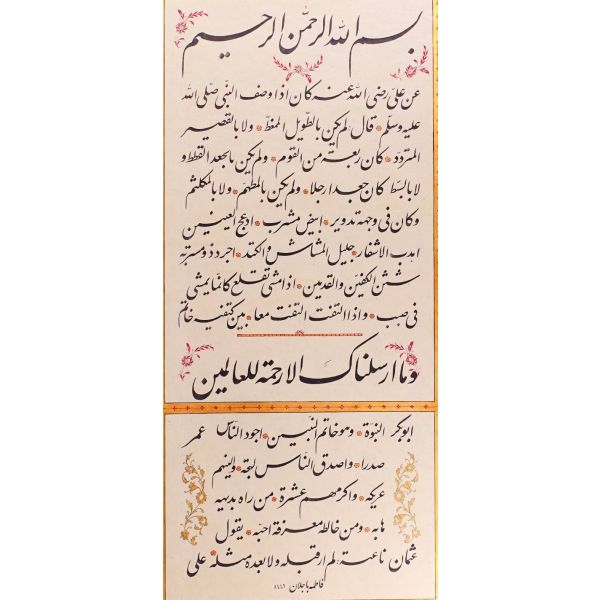 بسم الله الرحمن الرحيم
عن علی رضی الله عنه كان اذا وصف النبی صلی الله
علیه وسلم قال لم یكن بالطویل الممغط ولا بالقصیر
المتردد كان ربعة من القوم ولم یكن بالجعد القطط و
لا بالسبط كان جعدا رجلا ولم یكن بالمطهم ولا بالمكلثم
وكان فی وجهه تدویر ابیض مشرب ادعج العینین
اهدب الاشفار جلیل المشاش والكتد اجرد ذو مسربة
شثن الكفین والقدمین اذا مشی تقلع كانما یمشی
فی صبب واذا التفت التفت معا بین كتفیه خاتم
وما ارسلناك الا رحمة للعالمین
ابوبكر النبوة وهو خاتم النبیین اجود الناس عمر
صدرا واصدق الناس لهجة والینهم
عریكة واكرمهم عشرة من راه بدیهة
هابه ومن خالطه معرفة احبه یقول
عثمان ناعته لم ار قبله ولا بعده مثله علی
فاطمه باجلان